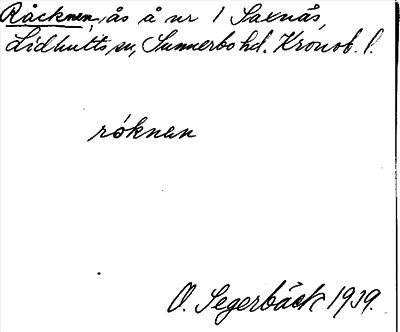 Råcknen, ås å nr 1 Saxnås,
Lidhults, sn, Sunnerbo hd. Kronob. l.
róknen
O. Segerbäck 1939.